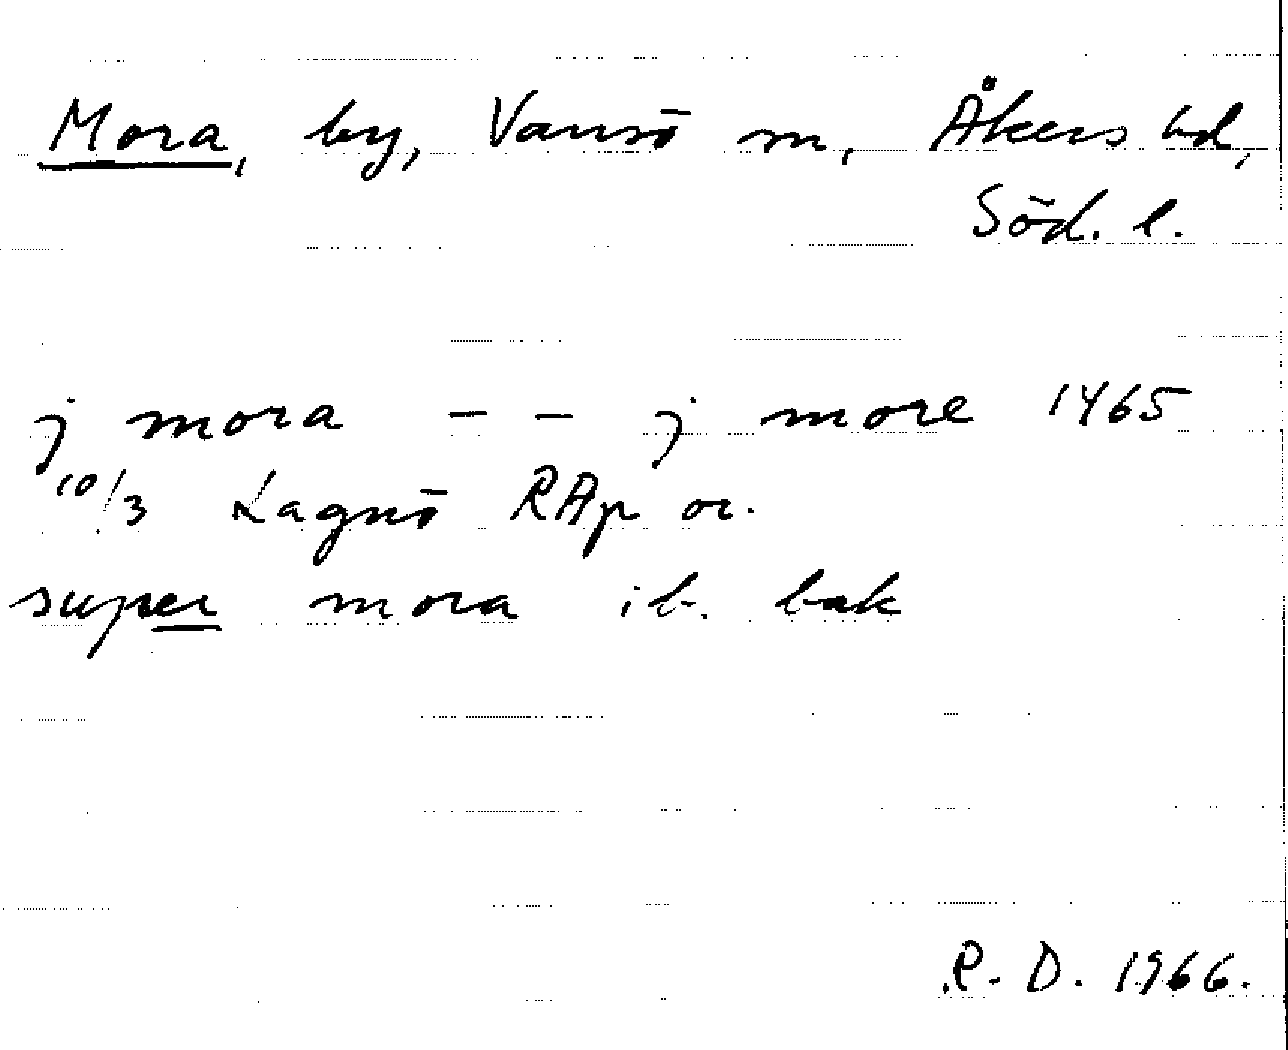 Mora, by, Vansö sn, Åkers hd,
Söd. l.
j mora - - j more 1465
10/3 Lagnö RAp or.
super mora ib. bak
R. D. 1966.